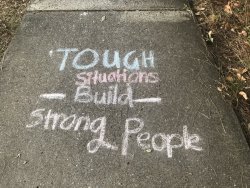 TOUGH
Situations
— Build —
Strong People